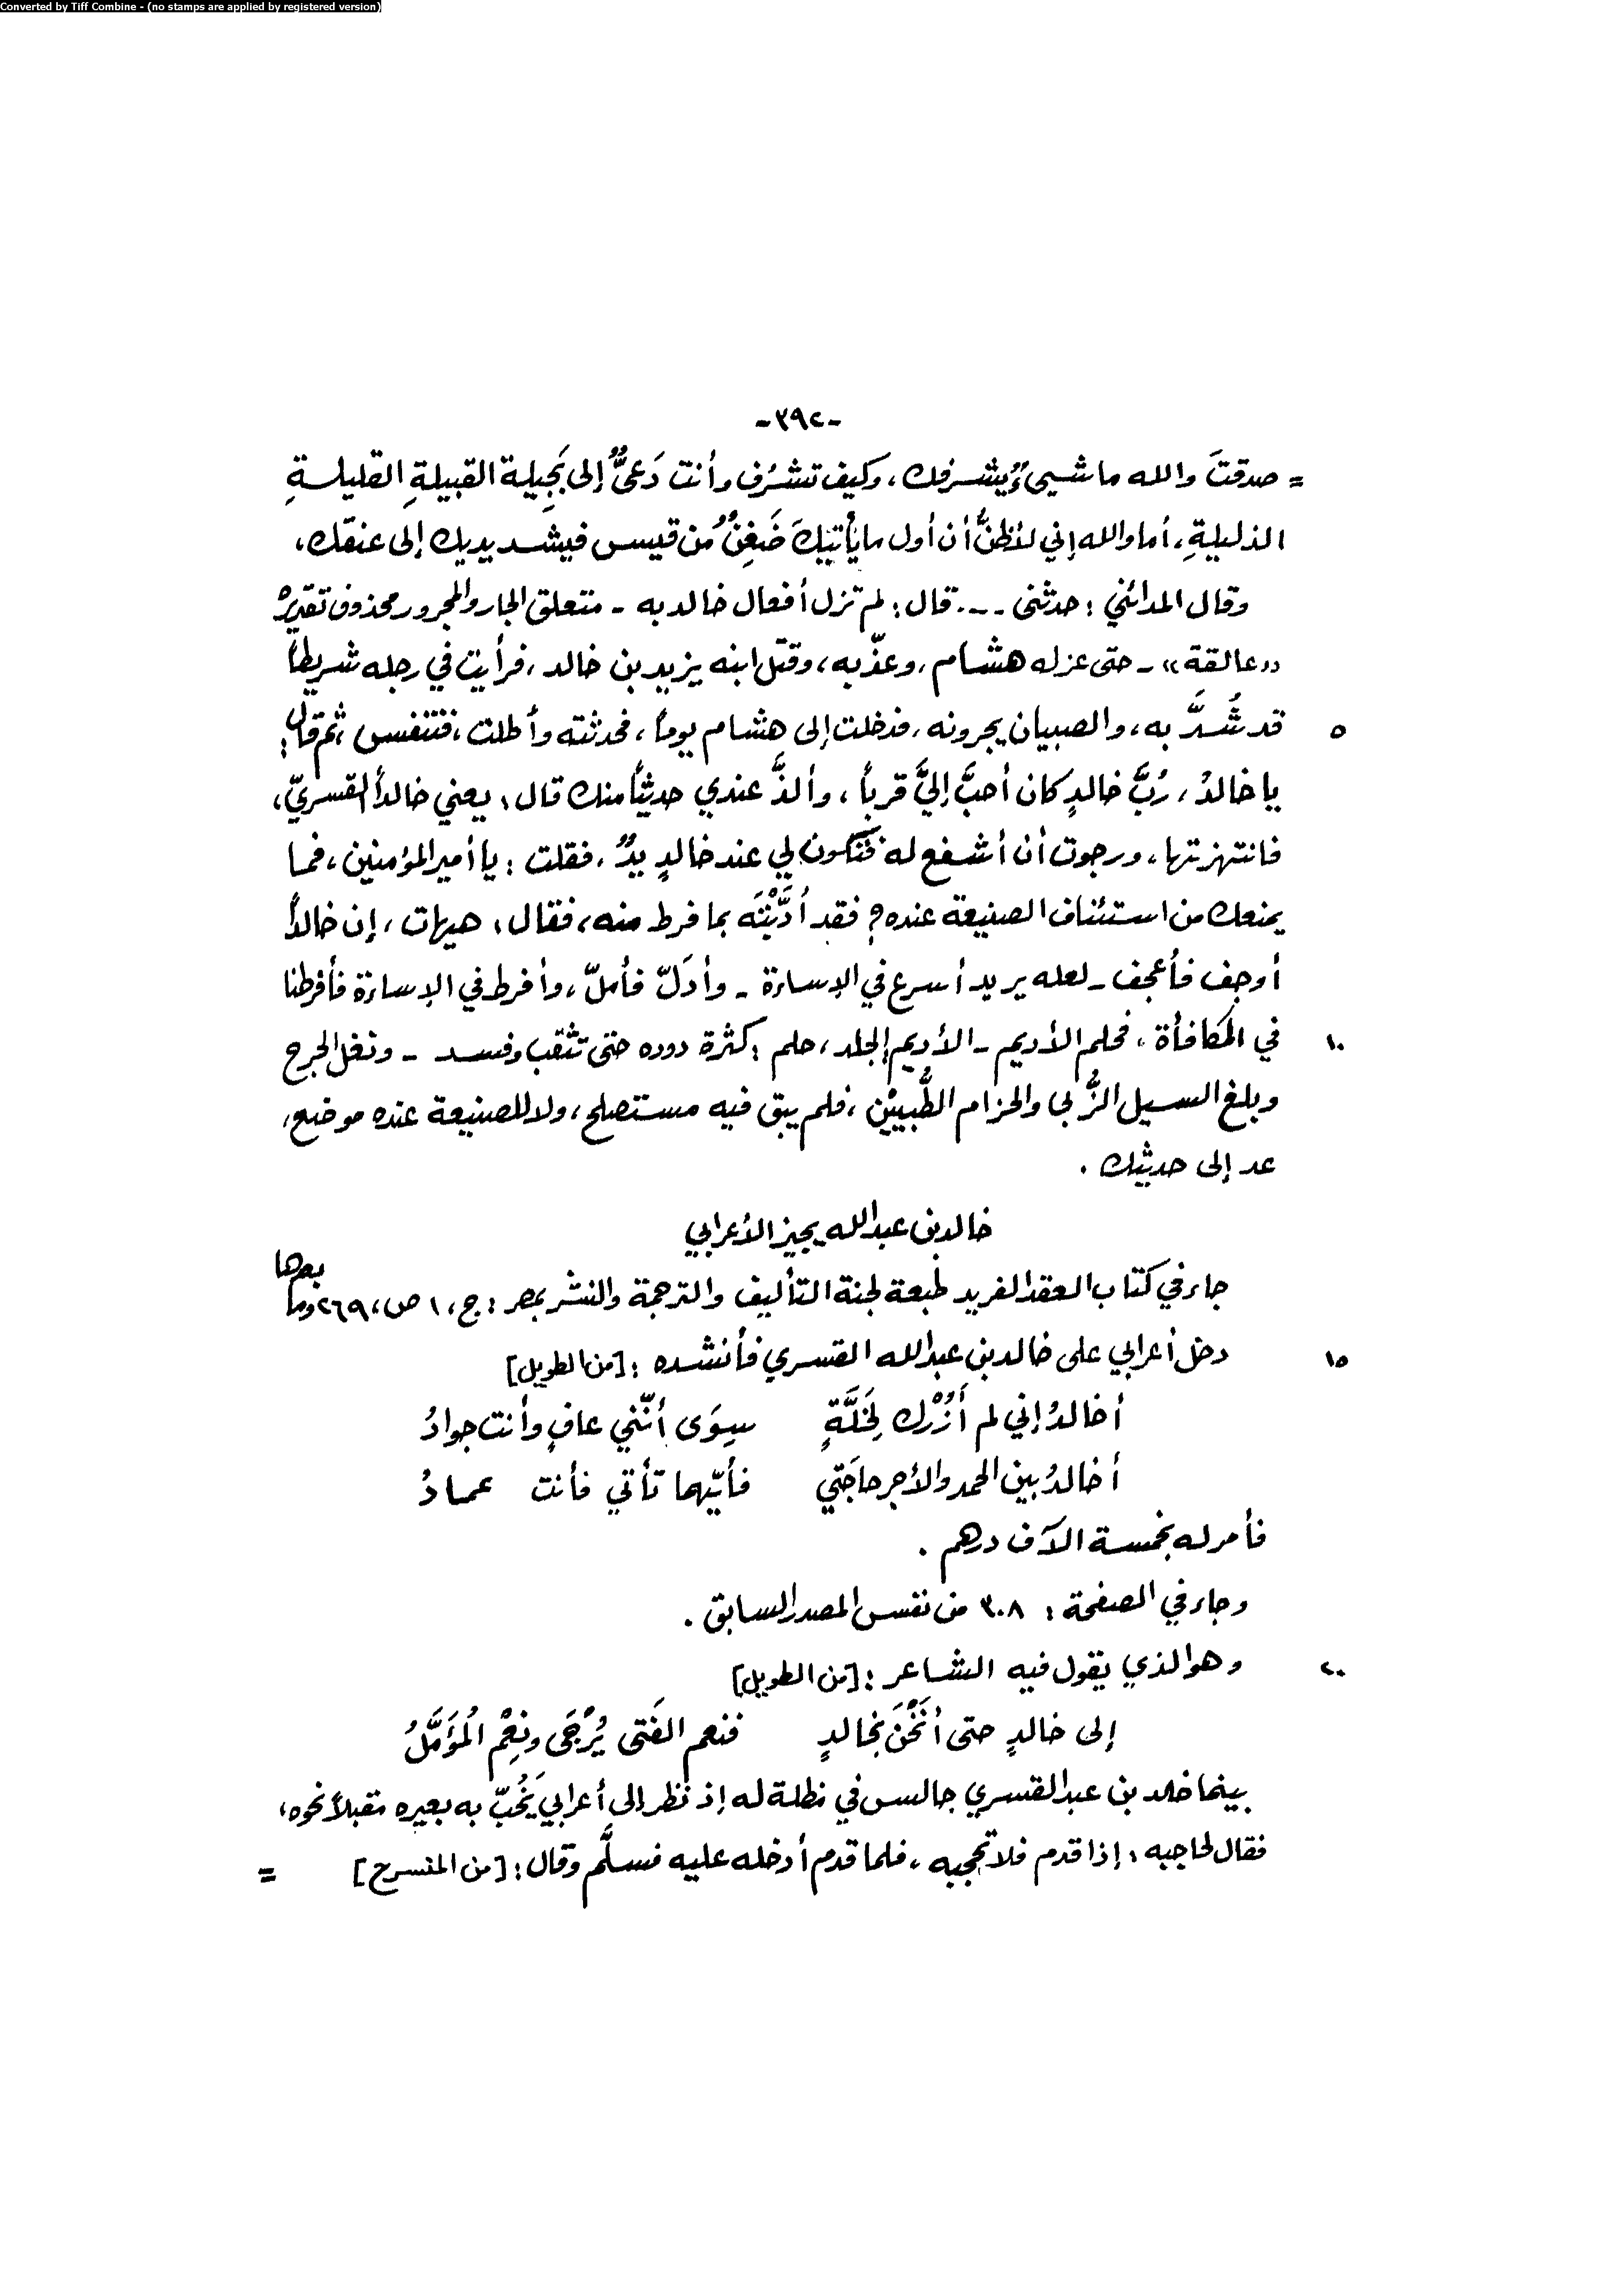 Converted by Tiff Combine - (no stamps are applied by registered version)
-٣٩٢-
= صدقتَ والله ما شيىءٌ يشرفك، وكيف تشرُف وأنت دَعيٌّ إلى بَجِيلة القبيلةِ القليلةِ
الذليلةِ، أما والله إني لأظنُّ أن أول ما يأتيكَ ضَغِنٌ من قيس فيشد يديك إلى عنقك،
وقال المدائني: حدثني ... قال: لم تزل أفعال خالد به - متعلق الجار والمجرور محذوف تقديره
«عالقة» - حتى عزله هشام، وعذّبه، وقتل ابنه يزيد بن خالد، فرأيت في رجله شريطاً
٥ قد شُدَّ به، والصبيان يجرونه، فدخلت إلى هشام يوماً، فحدثته وأطلت، فتنفس ثم قال:
يا خالدُ، رُبَّ خالدٍ كان أحبَّ إليَّ قرباً، وألذَّ عندي حديثاً منك قال، يعني خالداً القسريّ،
فانتهزتها، ورجوت أن أشفع له فتكون لي عند خالدٍ يدٌ، فقلت: يا أمير المؤمنين، فما
يمنعك من استئناف الصنيعة عنده؟ فقد أدَّبْتَه بما فرط منه، فقال، هيهات، إن خالداً
أوجف فأعجف - لعله يريد أسرع في الإساءة - وأدَلّ فأملّ، وأفرط في الإساءة فأفرطنا
١٠ في المكافأة، فحلم الأديم - الأديم: الجلد، حلم: كثرة دوده حتى تثقب وفسد - ونغل الجرح
وبلغ السيل الزُّبى والحزام الطُّبيين، فلم يبق فيه مستصلح، ولا للصنيعة عنده موضع،
عد إلى حديثك.
خالد بن عبد الله يجيز الأعرابي
جاء في كتاب العقد الفريد طبعة لجنة التأليف والترجمة والنشر بمصر: ج، ١ ص، ٢٦٩ وما بعدها
١٥ دخل أعرابي على خالد بن عبد الله القسري فأنشده: [من الطويل]
أخالدُ إني لم أَزُرْك لِخَلَّةٍ سِوَى أنّني عافٍ وأنت جوادُ
أخالدُ بين الحمد والأجر حاجَتي فأيّهما تأتي فأنت عمادُ
فأمر له بخمسة الآف درهم.
وجاء في الصفحة: ٣٠٨ من نفس المصدر السابق.
٢٠ وهو الذي يقول فيه الشاعر: [من الطويل]
إلى خالدٍ حتى أنَخْنَ بخالدٍ فنعم الفَتى يُرْجَى ونِعْم المُؤَمَّلُ
بينما خالد بن عبد القسري جالس في مظلة له إذ نظر إلى أعرابي يَخُبّ به بعيره مقبلاً نحوه،
فقال لحاجبه، إذا قدم فلا تحجبه، فلما قدم أدخله عليه فسلَّم وقال: [من المنسرح] =